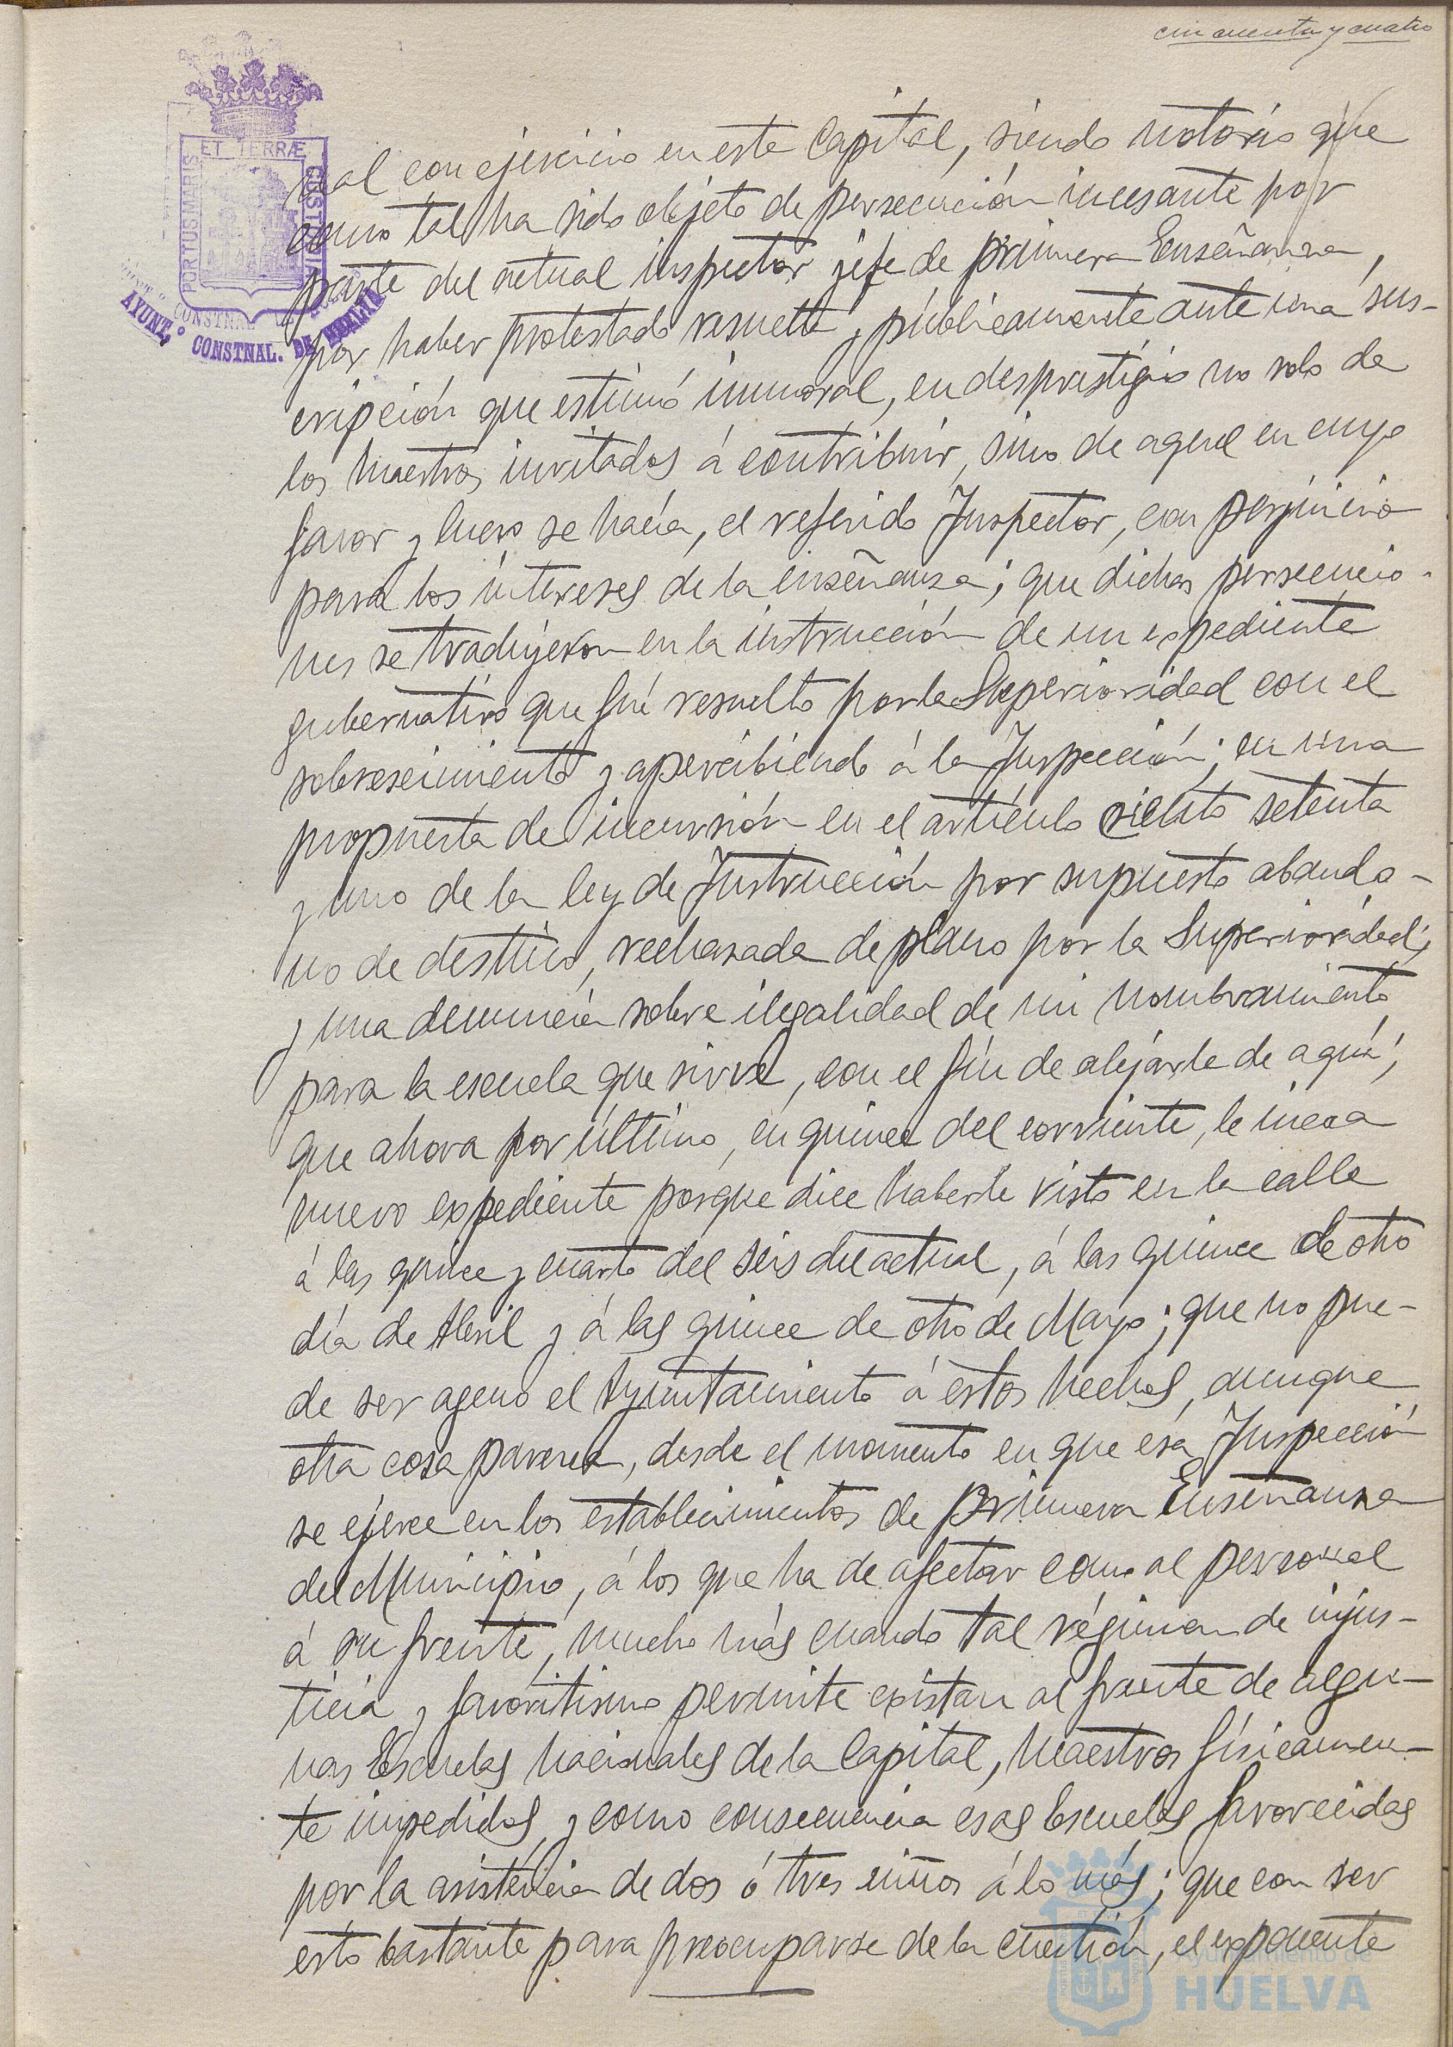 cincuenta y cuatro
ET TERRÆ
PORTUS MARIS
CUSTODIA
AYUNT.º CONSTNAL. DE HUELVA
nal con ejercicio en esta Capital, siendo notorio que
como tal ha sido objeto de persecución incesante por
parte del actual inspector jefe de primera Enseñanza,
por haber protestado resuelta y públicamente ante una sus-
cripción que estimó inmoral, en desprestigio no solo de
los maestros invitados á contribuir, sino de aquel en cuyo
favor y lucro se hacía, el referido Inspector, con perjuicio
para los intereses de la enseñanza; que dichas persecucio-
nes se tradujeron en la instrucción de un expediente
gubernativo que fué resuelto por la Superioridad con el
sobreseimiento y apercibiendo á la Inspección; en una
propuesta de incursión en el artículo ciento setenta
y uno de la ley de Instrucción por supuesto abando-
no de destino, rechazada de plano por la Superioridad;
y una denuncia sobre ilegalidad de mi nombramiento
para la escuela que sirve, con el fín de alejarle de aquí;
que ahora por último, en quince del corriente, le incoa
nuevo expediente porque dice haberle visto en la calle
á las quince y cuarto del seis del actual, á las quince de otro
día de Abril y á las quince de otro de Mayo; que no pue-
de ser ageno el Ayuntamiento á estos hechos, aunque
otra cosa parezca, desde el momento en que esa Inspección
se ejerce en los establecimientos de primera Enseñanza
del Municipio, á los que ha de afectar como al personal
á su frente, mucho más cuando tal régimen de injus-
ticia y favoritismo permite existan al frente de algu-
nas Escuelas nacionales de la Capital, maestros físicamen-
te impedidos, y como consecuencia esas Escuelas favorecidas
por la asistencia de dos ó tres niños á lo más; que con ser
esto bastante para preocuparse de la cuestión, el exponente
Ayuntamiento de
HUELVA